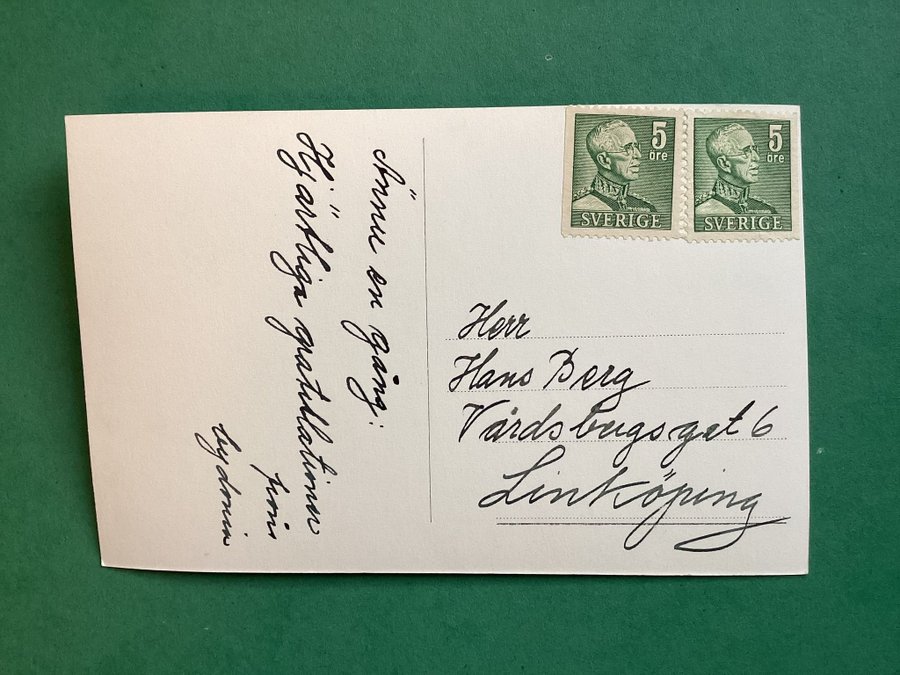 Ännu en gång:
Hjärtliga gratulationer
från
5
öre
SVERIGE
5
öre
SVERIGE
Herr
Hans Berg
Vårdsbergsgat 6
Linköping